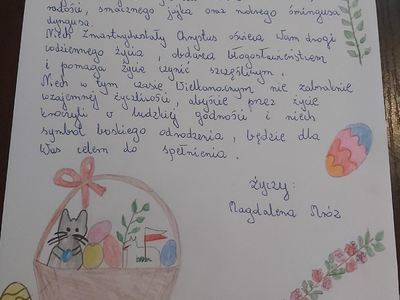 radości, smacznego jajka oraz mokrego śmingusa
dyngusa.
Niech Zmartwychwstały Chrystus oświeca Wam drogi
codziennego życia, obdarza błogosławieństwem
i pomaga życie czynić szczęśliwym.
Niech w tym czasie Wielkanocnym nie zabraknie
wzajemnej życzliwości, abyście przez życie
kroczyli w ludzkiej godności i niech
symbol boskiego odrodzenia, będzie dla
Was celem do spełnienia.
Życzy:
Magdalena Mróz